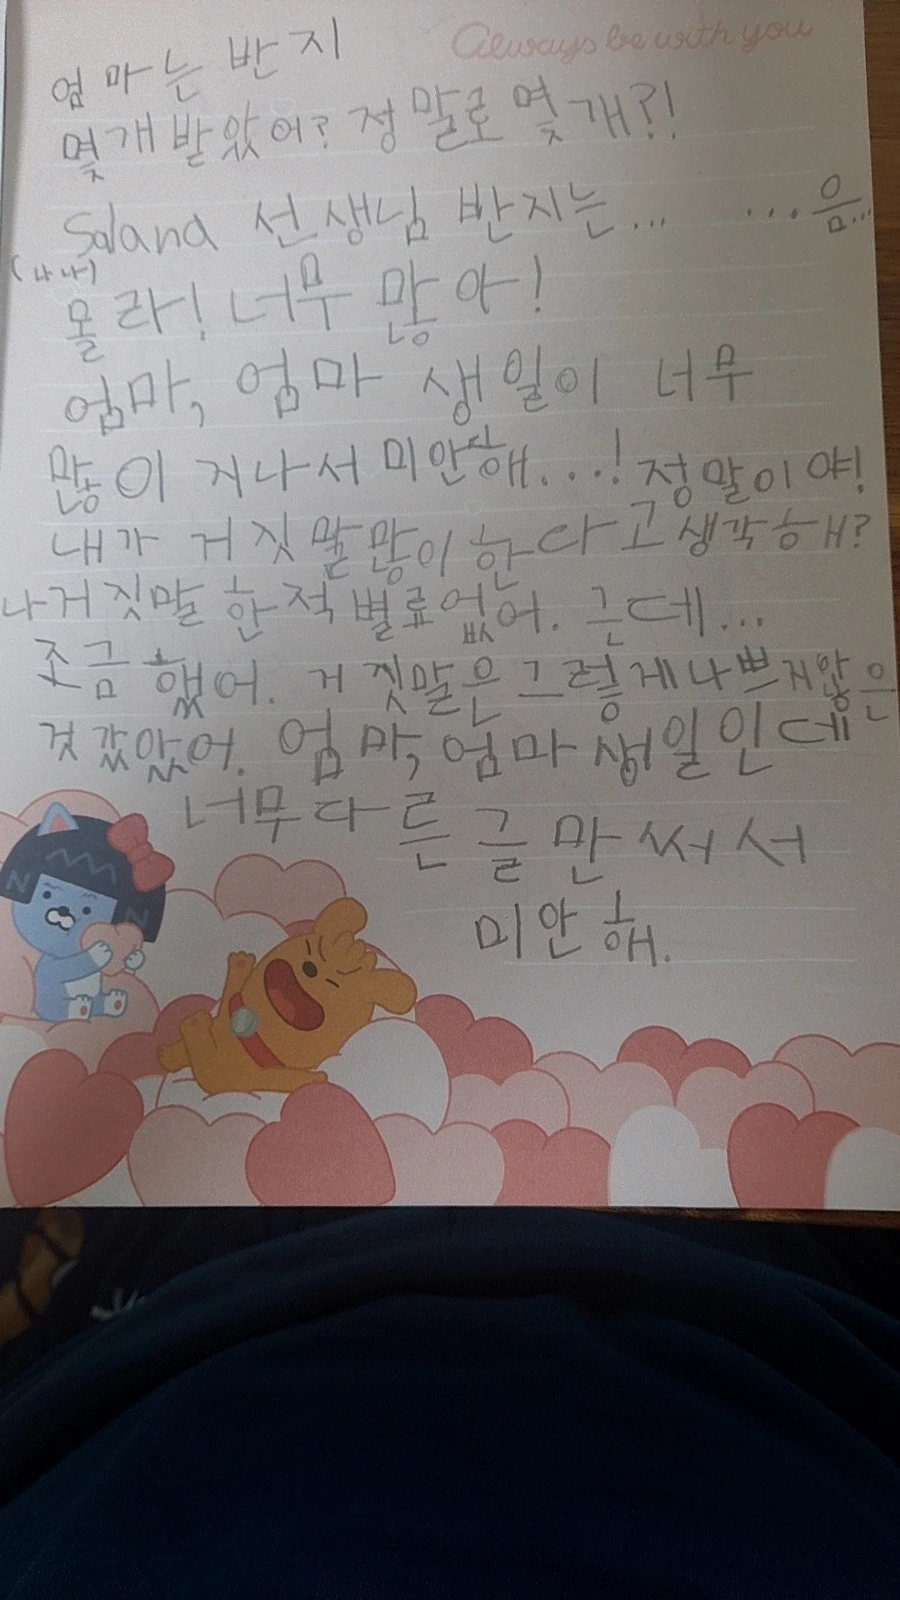 Always be with you
엄마는 반지
몇개 받았어? 정말로 몇 개?!
Salana 선생님 반지는... ...음...
(나나)
몰라! 너무 많아!
엄마, 엄마 생일이 너무
많이 지나서 미안해...! 정말이야!
내가 거짓말 많이 한다고 생각해?
나 거짓말 한 적 별료 없어. 근데...
조금 했어. 거짓말은 그렇게 나쁘지않은
것 같았어. 엄마, 엄마 생일인데
너무 다른 글만 써서
미안해.